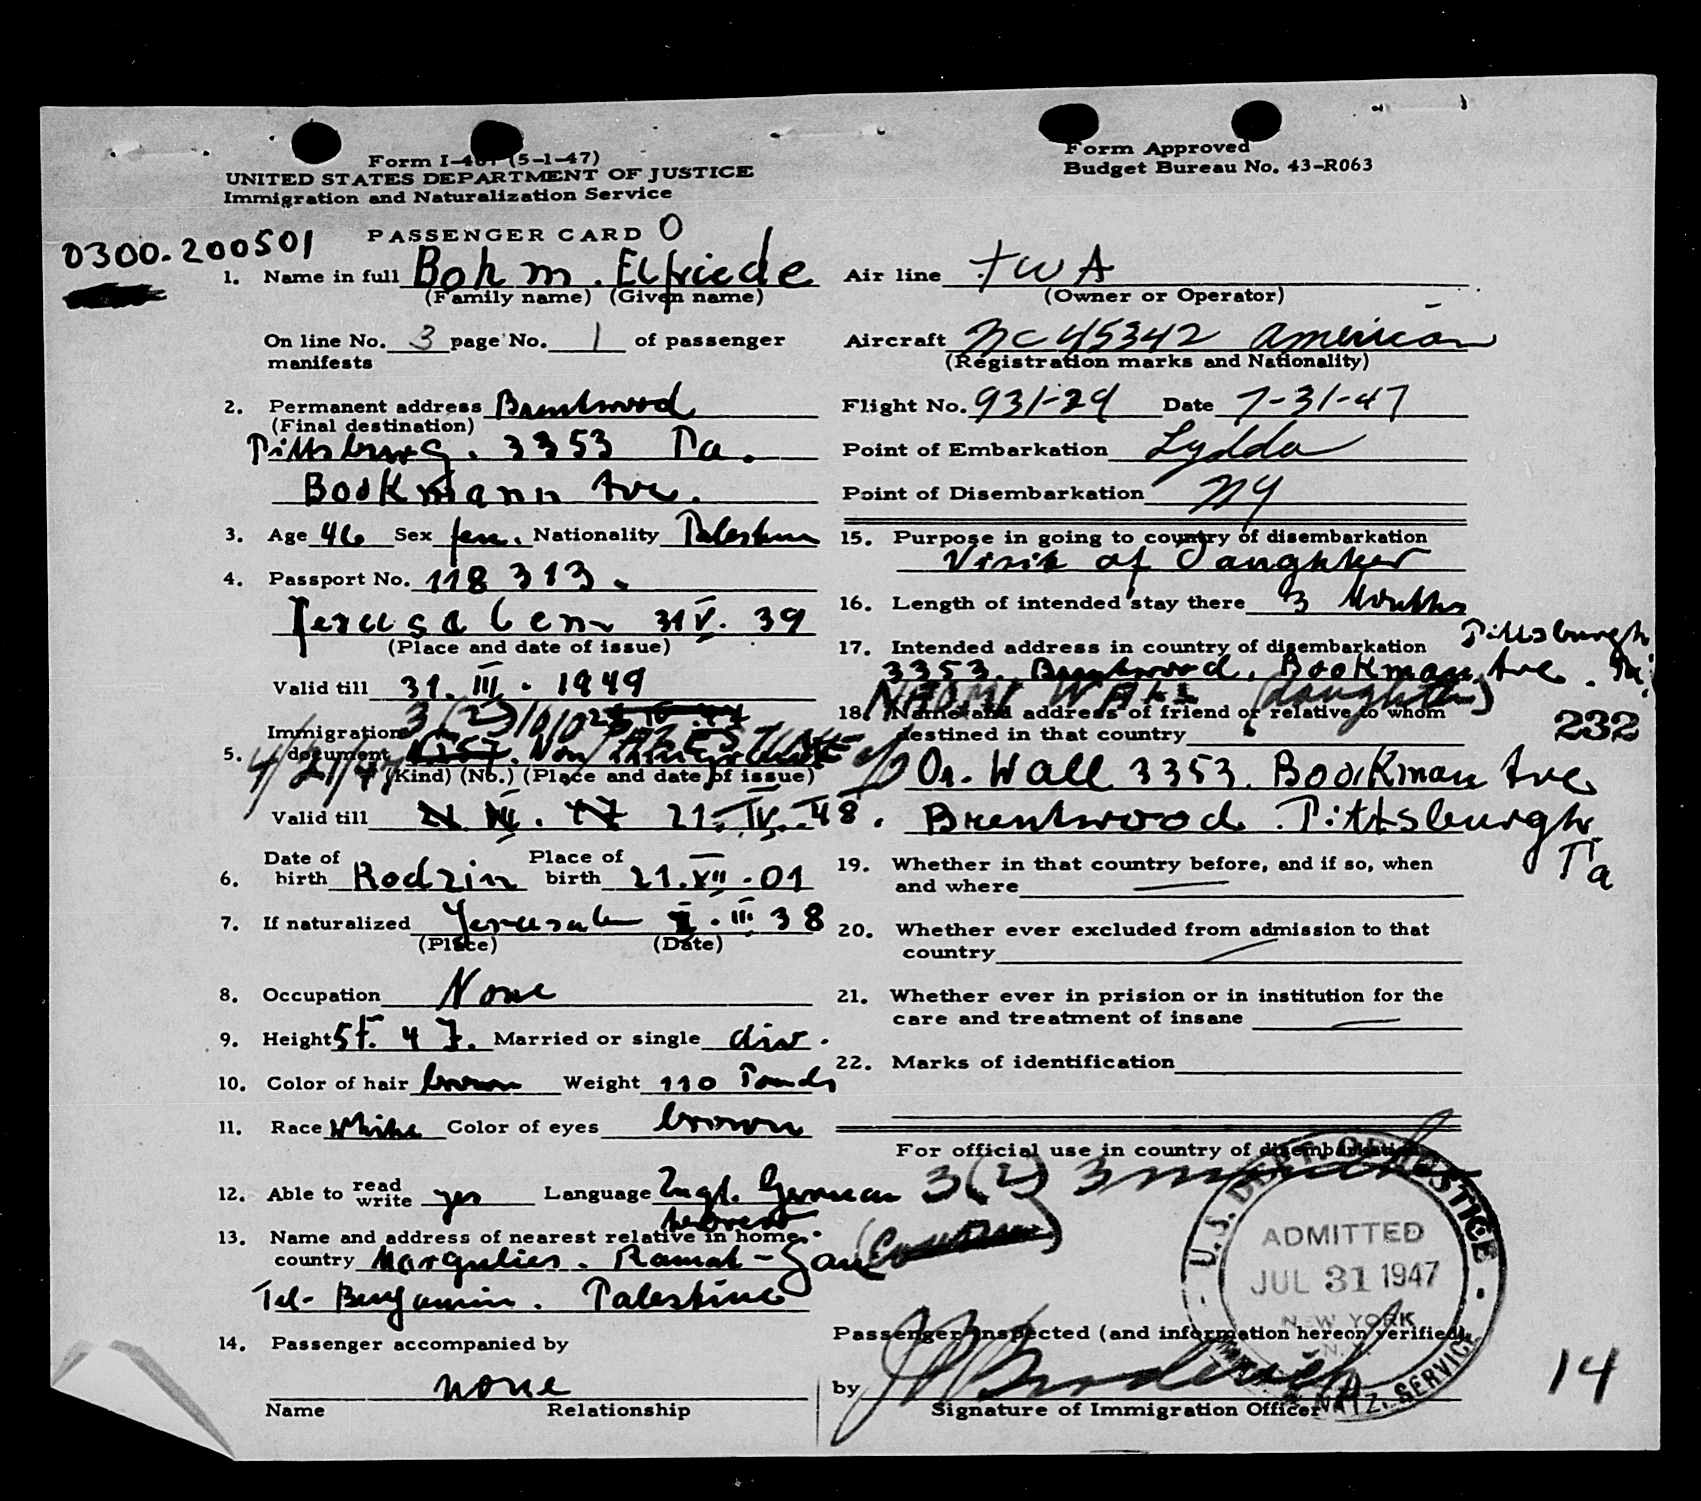 Form I-467 (5-1-47)
UNITED STATES DEPARTMENT OF JUSTICE
Immigration and Naturalization Service
Form Approved
Budget Bureau No. 43-R063
PASSENGER CARD O
0300.200501
1. Name in full Bohm. Elfriede
(Family name) (Given name)
On line No. 3 page No. 1 of passenger
manifests
2. Permanent address Brentwood
(Final destination)
Pittsburg. 3353 Pa.
Bookmann Ave.
3. Age 46 Sex fem. Nationality Palestin
4. Passport No. 118 313.
Jerusalem 31 V. 39
(Place and date of issue)
Valid till 31. III. 1949
Immigration 3(2)
5. document
4/21/47 (Kind) (No.) (Place and date of issue)
Valid till 21. IV. 48.
6. Date of birth Rodzin Place of birth 21. XII. 01
7. If naturalized Jerusalem III. 38
(Place) (Date)
8. Occupation None
9. Height 5 f. 4 Married or single div.
10. Color of hair brown Weight 110 Pounds
11. Race White Color of eyes brown
12. Able to read write yes Language Engl. German
hebrew
13. Name and address of nearest relative in home
country Margulies. Ramat-Gan
Tel-Benjamin. Palestine
14. Passenger accompanied by
none
Name Relationship
Air line TWA
(Owner or Operator)
Aircraft NC 45342 American
(Registration marks and Nationality)
Flight No. 931-29 Date 7-31-47
Point of Embarkation Lydda
Point of Disembarkation NY
15. Purpose in going to country of disembarkation
Visit of Daughter
16. Length of intended stay there 3 Months
17. Intended address in country of disembarkation Pittsburgh
3353. Brentwood, Bookman Ave. Pa.
NAOMI WALL (daughter)
18. Name and address of friend or relative to whom
destined in that country
232
c/o Dr. Wall 3353. Bookman Ave
Brentwood. Pittsburgh.
Pa
19. Whether in that country before, and if so, when
and where
20. Whether ever excluded from admission to that
country
21. Whether ever in prision or in institution for the
care and treatment of insane
22. Marks of identification
For official use in country of disembarkation
3(2) 3 months
U.S. DEPT. OF JUSTICE
ADMITTED
JUL 31 1947
NEW YORK
N.Y.
NATZ. SERVICE
Passenger inspected (and information hereon verified)
by
Signature of Immigration Officer
14